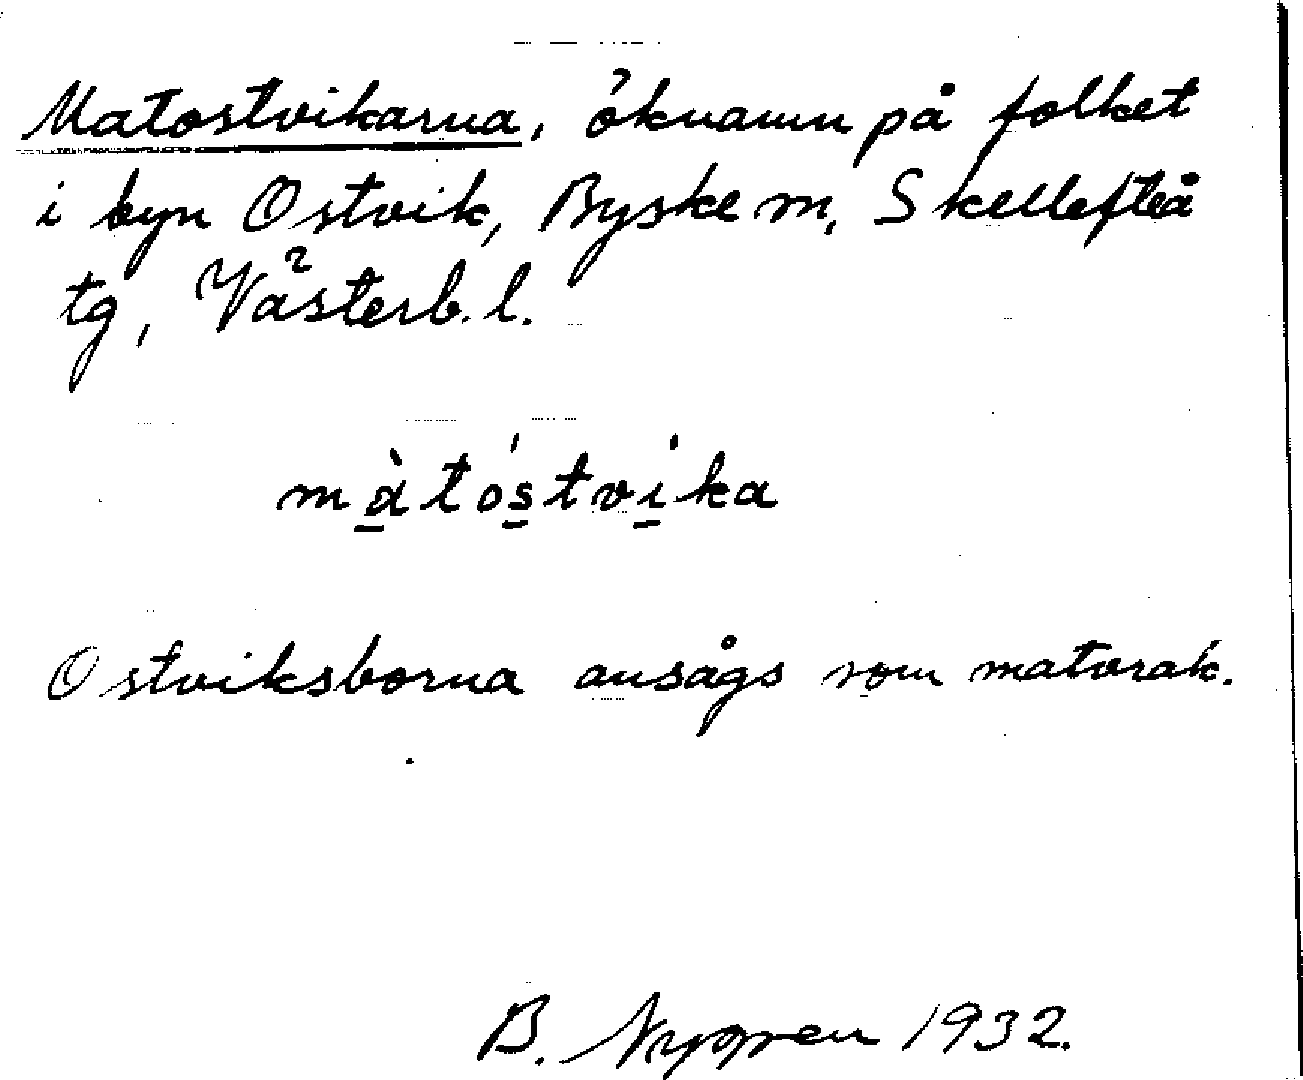 Matostvikarna, öknamn på folket
i byn Ostvik, Byske m, Skellefteå
tg, Västerb. l.
mà̱tós̱tví̱ka
Ostviksborna ansågs som matvrak.
B. Nygren 1932.